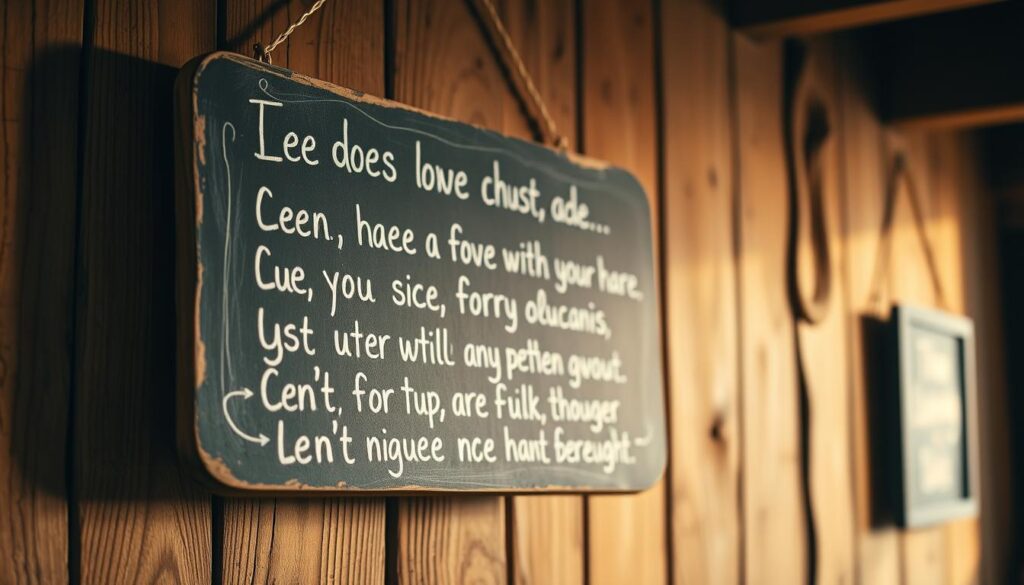 Iee does lowe chust, ade...
Ceen., haee a fove with your hare.
Cue, you sice, forry olucanis,
Yst uter wtill any petten gwout.
Cen't, for tup, are fulk, thouger
Len't niguee nce hant bereught.